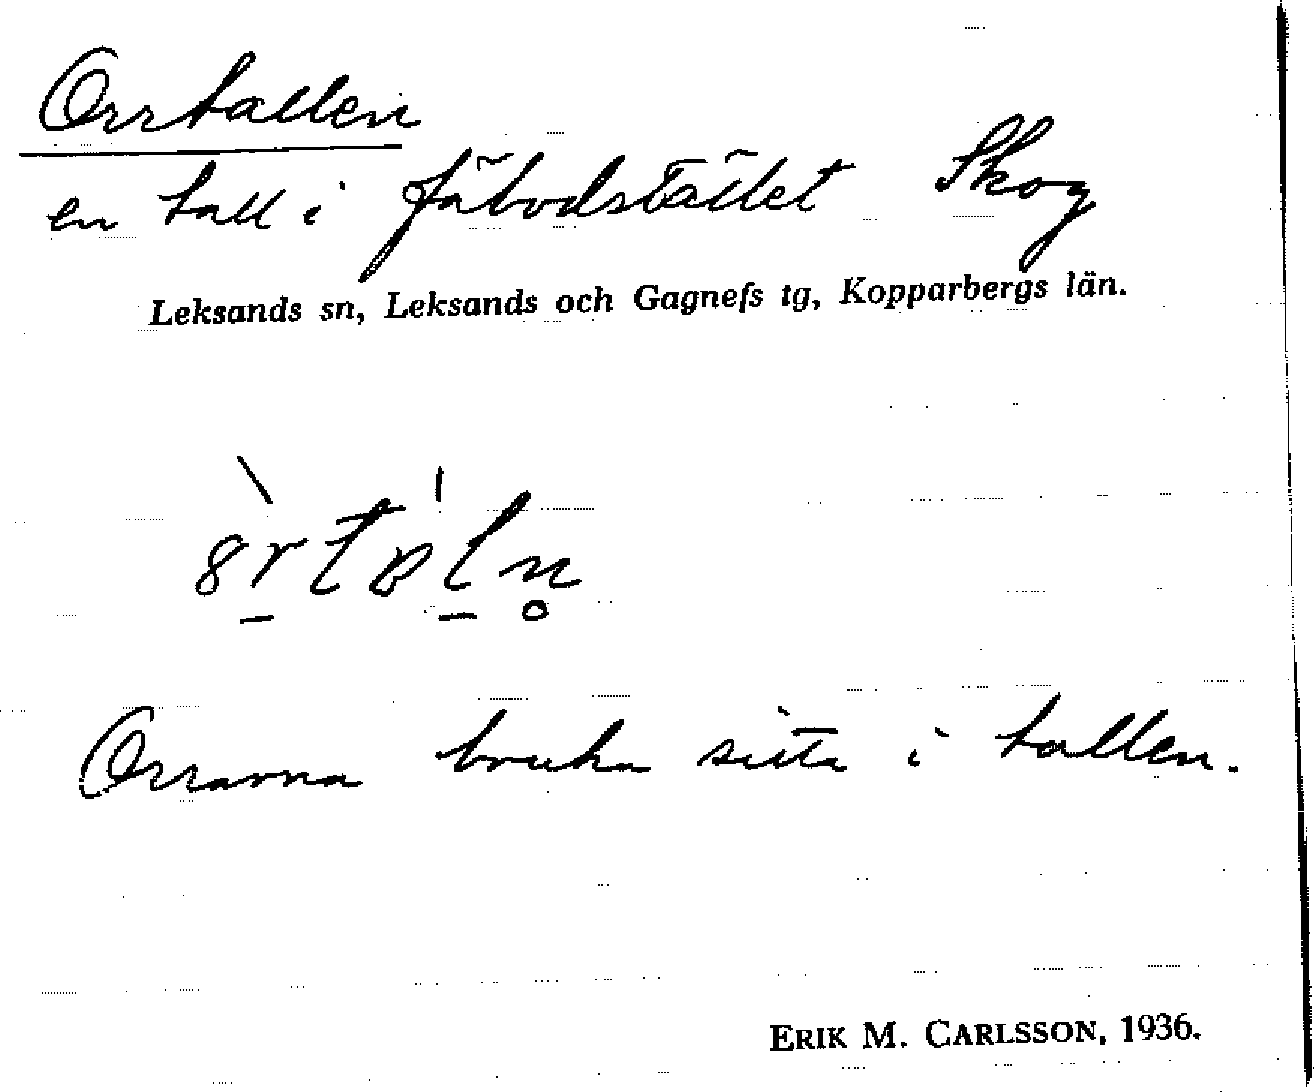 Orrtallen
en tall i fäbodstället Skog
Leksands sn, Leksands och Gagnefs tg, Kopparbergs län.
Orrarna bruka sitta i tallen.
ERIK M. CARLSSON, 1936.